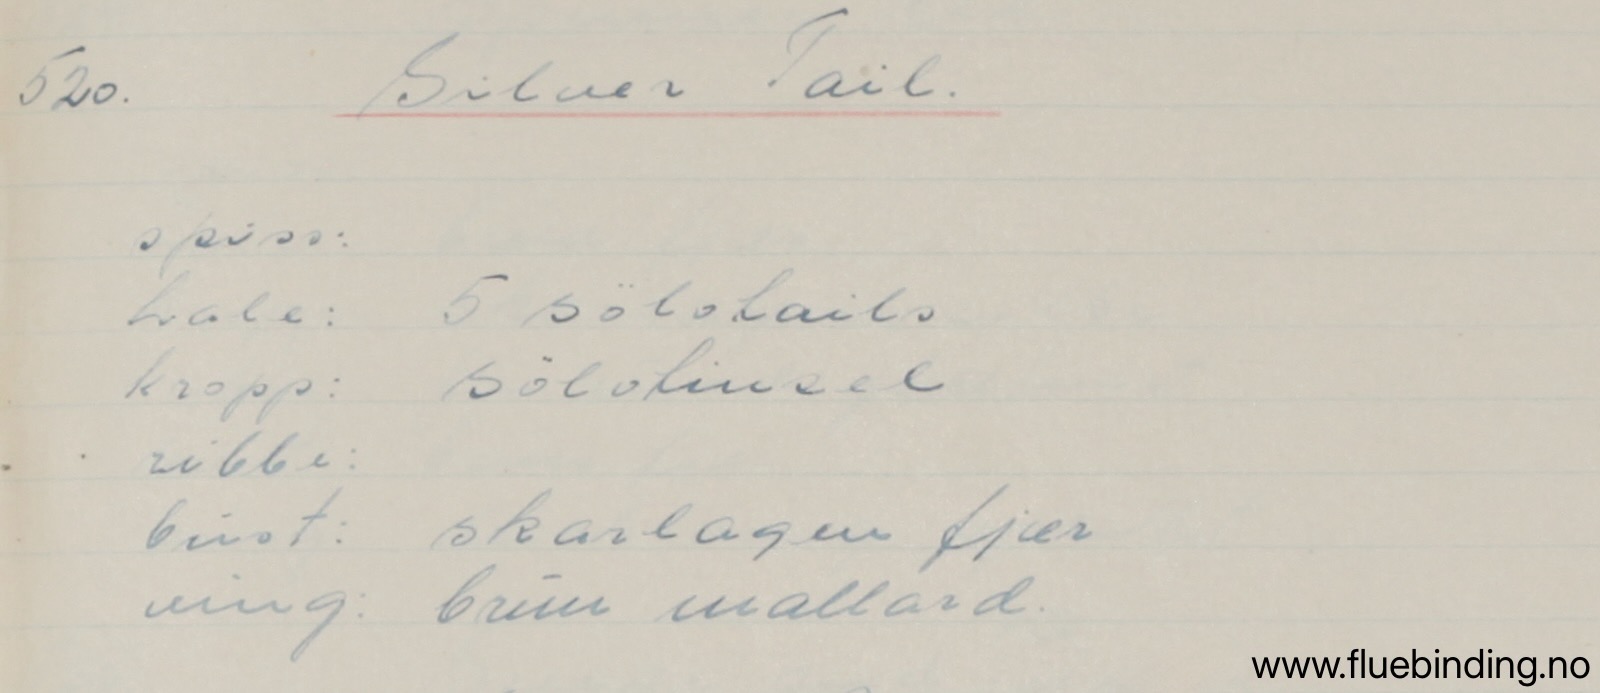 520. Silver Tail.
spiss:
hale: 5 sölvtails
kropp: sölvtinsel
ribbe:
büst: skarlagen fjær
ving: brün mallard.
www.fluebinding.no